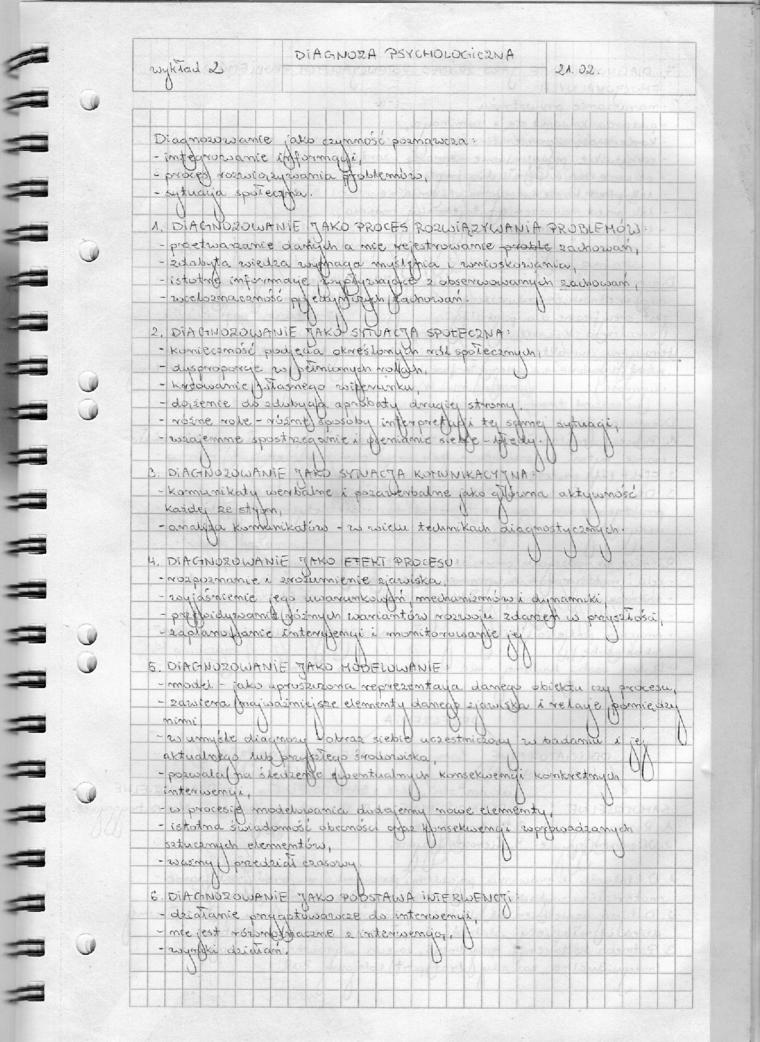 DIAGNOZA PSYCHOLOGICZNA
wykład 2
21.02.
Diagnozowanie jako czynność poznawcza:
- integrowanie informacji,
- proces rozwiązywania problemów,
- sytuacja społeczna.
1. DIAGNOZOWANIE JAKO PROCES ROZWIĄZYWANIA PROBLEMÓW:
- przetwarzanie danych a nie rejestrowanie proble zachowań,
- zdobyta wiedza wymaga myślenia i wnioskowania,
- istotne informacje wypływające z obserwowanych zachowań,
- wieloznaczność pojedynczych zachowań.
2. DIAGNOZOWANIE JAKO SYTUACJA SPOŁECZNA:
- konieczność podjęcia określonych ról społecznych,
- dysproporcje w pełnionych rolach,
- kreowanie własnego wizerunku,
- dążenie do zdobycia aprobaty drugiej strony,
- różne role - różne sposoby interpretacji tej samej sytuacji,
- wzajemne spostrzeganie i ocenianie siebie - błędy.
3. DIAGNOZOWANIE JAKO SYTUACJA KOMUNIKACYJNA:
- komunikaty werbalne i pozawerbalne jako główna aktywność
każdej ze stron,
- analiza komunikatów - w wielu technikach diagnostycznych.
4. DIAGNOZOWANIE JAKO EFEKT PROCESU:
- rozpoznanie i zrozumienie zjawiska,
- wyjaśnienie jego uwarunkowań, mechanizmów i dynamiki,
- przewidywanie różnych wariantów rozwoju zdarzeń w przyszłości,
- zaplanowanie interwencji i monitorowanie jej
5. DIAGNOZOWANIE JAKO MODELOWANIE:
- model - jako uproszczona reprezentacja danego obiektu czy procesu,
- zawiera najważniejsze elementy danego zjawiska i relacje pomiędzy
nimi,
- w umyśle diagnozy obraz siebie uczestniczący w badaniu i jej
aktualnego lub przyszłego środowiska,
- pozwala na śledzenie ewentualnych konsekwencji konkretnych
interwencji,
- w procesie modelowania dodajemy nowe elementy,
- istotna świadomość obecności oraz konsekwencji wprowadzanych
sztucznych elementów,
- ważny przedział czasowy.
6. DIAGNOZOWANIE JAKO PODSTAWA INTERWENCJI:
- działanie przygotowawcze do interwencji,
- nie jest równoznaczne z interwencją,
- wyniki działań.